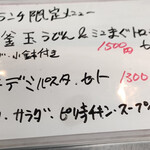 ランチ限定メニュー
釜玉うどん&ミニまぐトロ
小鉢付き 1500円
デミパスタ・セット 1300
・サラダ・ピリ辛チキン・スープ